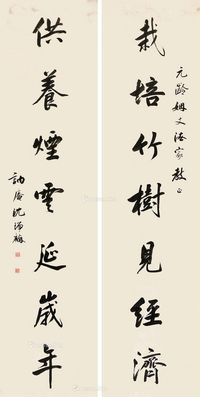 元龄姻丈法家教正
栽培竹樹見經濟
供養煙雲延歲年
訥盦沈瑞麟